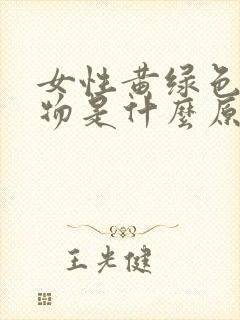 女性黄绿色
物是什麼原
王光健